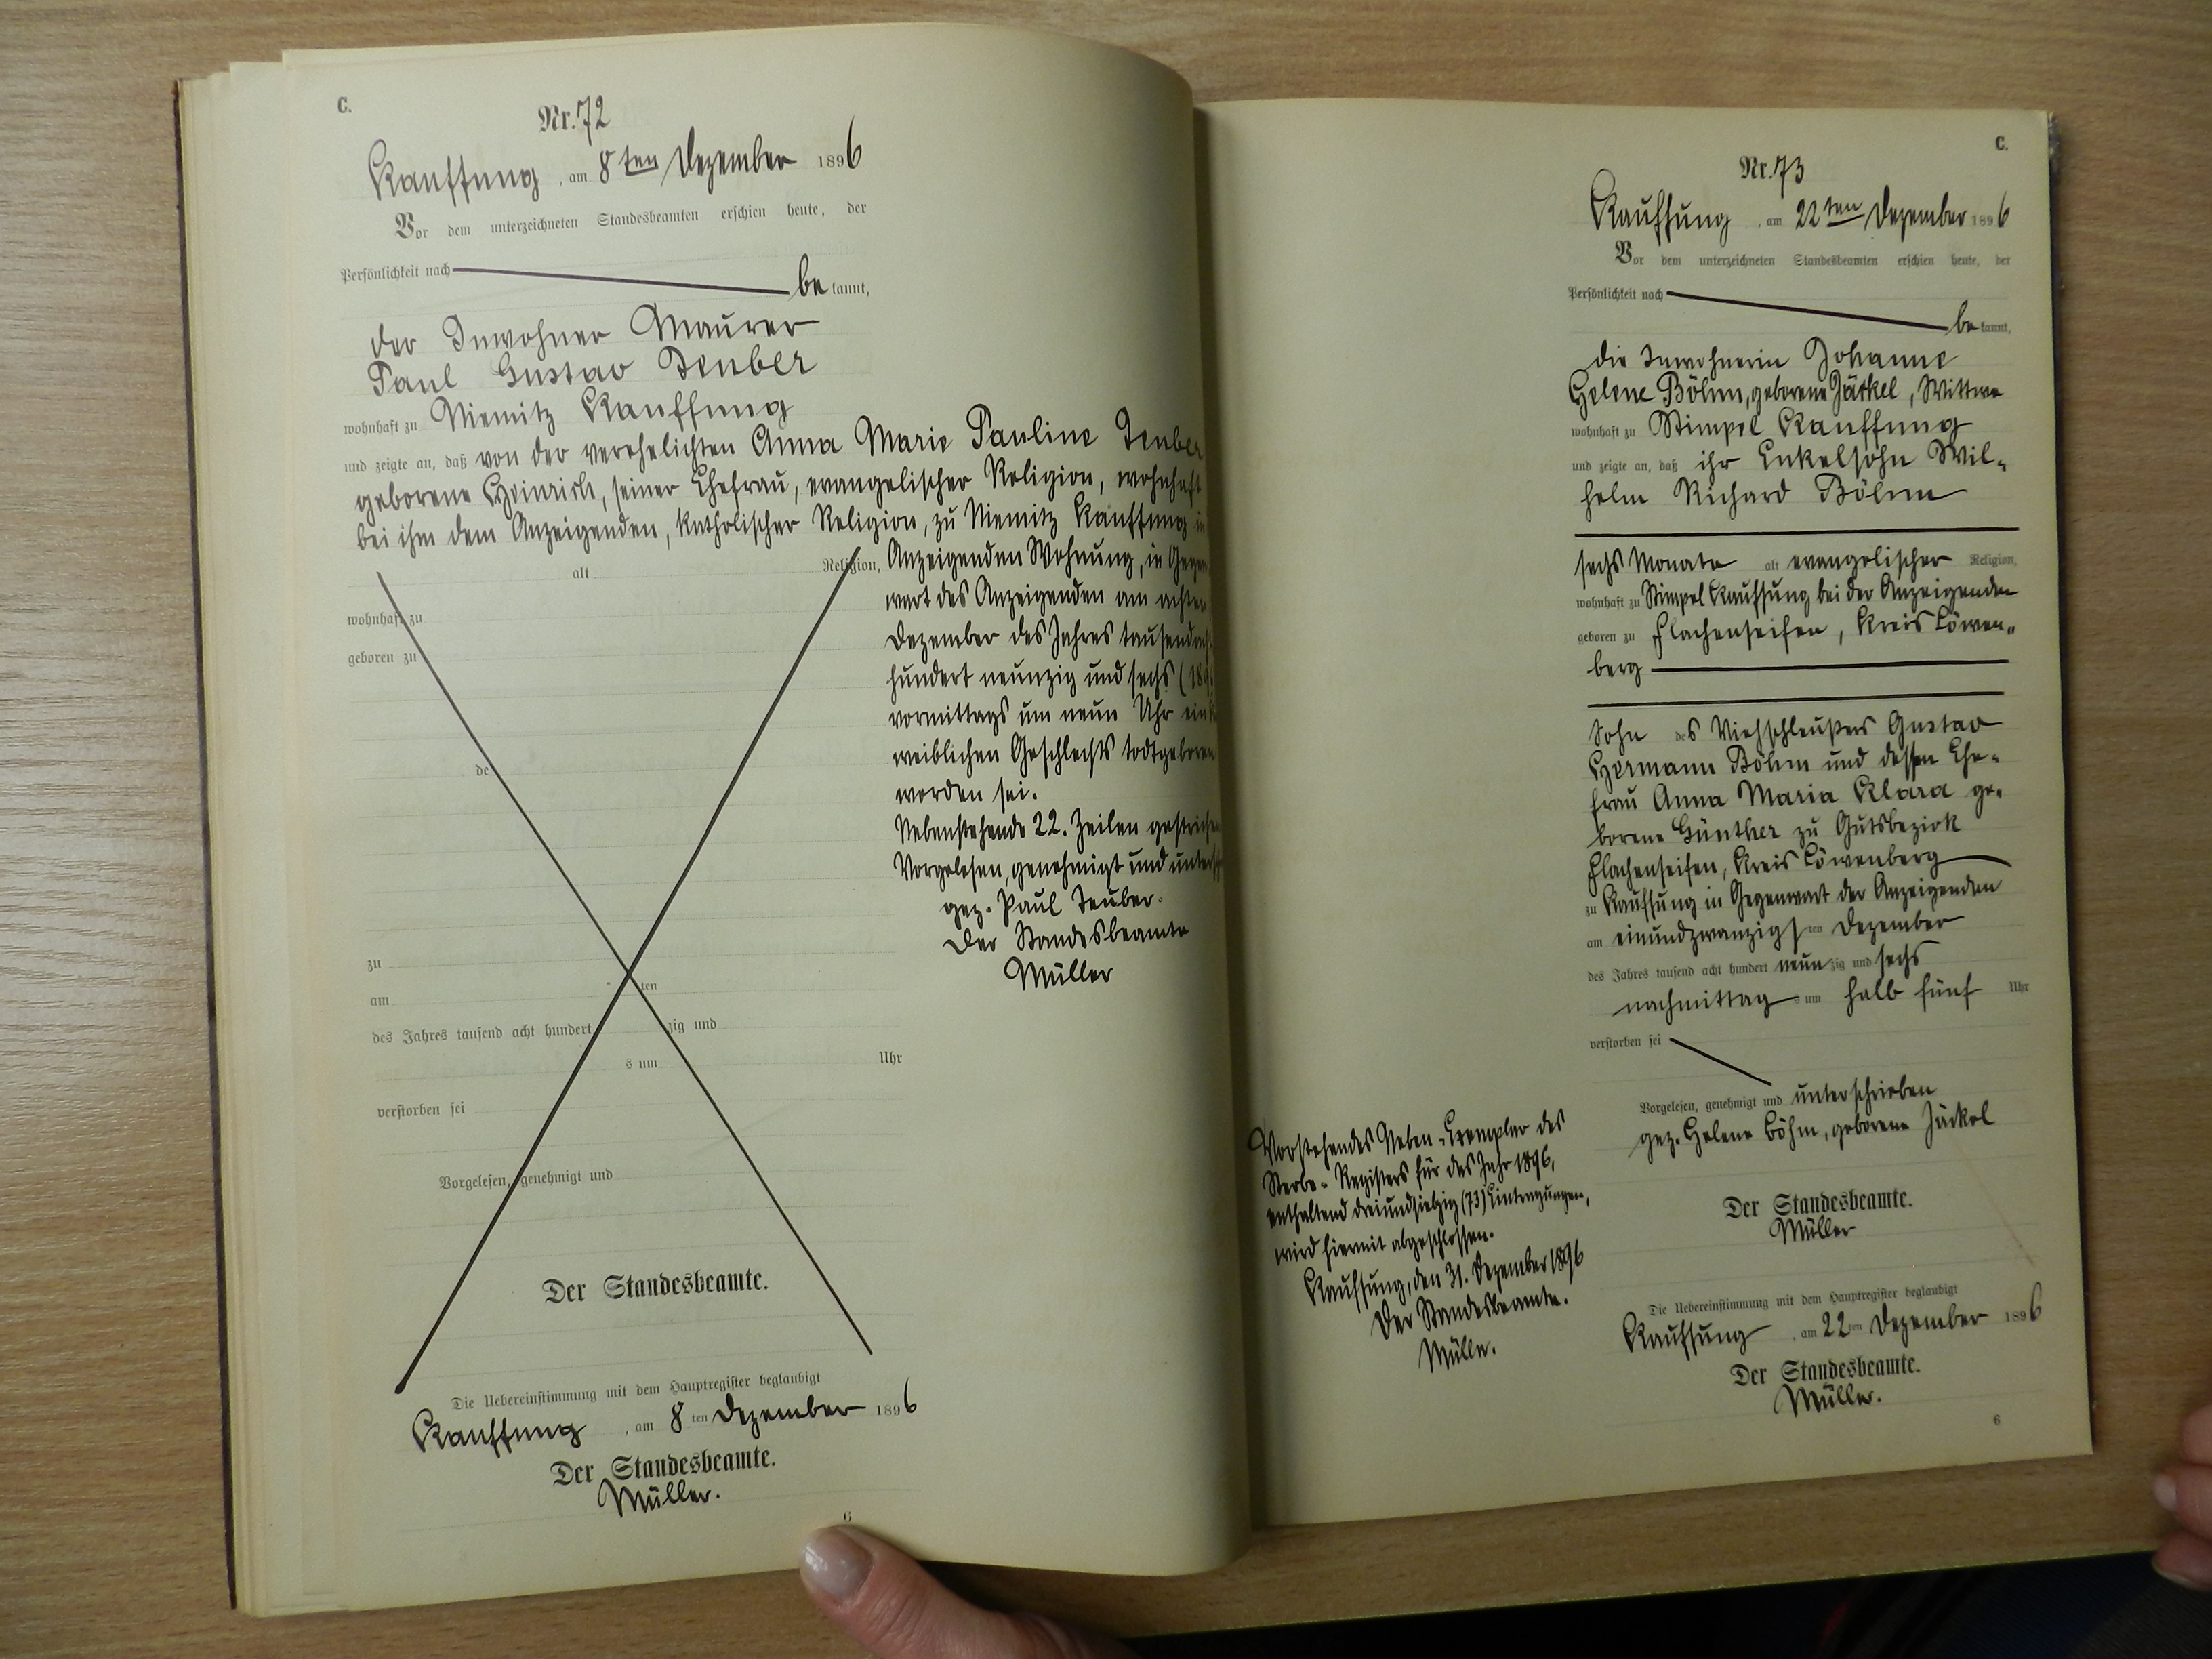 C.
Nr. 72
Kauffung, am 8ten Dezember 1896
Vor dem unterzeichneten Standesbeamten erschien heute, der
Persönlichkeit nach
be kannt,
der Inwohner Maurer
Paul Gustav Teuber
wohnhaft zu Niemitz Kauffung
und zeigte an, daß von der verehelichten Anna Marie Pauline Teuber
geborene Heinrich, seiner Ehefrau, evangelischer Religion, wohnhaft
bei ihm dem Anzeigenden, katholischer Religion, zu Niemitz Kauffung in
alt Religion, Anzeigenden Wohnung, in Gegen
wart des Anzeigenden am achten
wohnhaft zu
Dezember des Jahres tausend acht
geboren zu
hundert neunzig und sechs (189
vormittags um neun Uhr ein
weiblichen Geschlechts todtgeboren
de
worden sei.
Nebenstehende 22. Zeilen gestrichen
Vorgelesen, genehmigt und untersch
gez. Paul Teuber.
Der Standesbeamte
Müller
zu
am ten
des Jahres tausend acht hundert zig und
s um Uhr
verstorben sei
Vorgelesen, genehmigt und
Der Standesbeamte.
Die Uebereinstimmung mit dem Hauptregister beglaubigt
Kauffung, am 8 ten Dezember 1896
Der Standesbeamte.
Müller.
6
C.
Nr. 73
Kauffung, am 22ten Dezember 1896
Vor dem unterzeichneten Standesbeamten erschien heute, der
Persönlichkeit nach
be kannt,
die Inwohnerin Johanne
Helene Böhm, geborene Jäckel, Wittwe
wohnhaft zu Stimpel Kauffung
und zeigte an, daß ihr Enkelsohn Wil-
helm Richard Böhm
sechs Monate alt evangelischer Religion,
wohnhaft zu Stimpel Kauffung bei der Anzeigenden
geboren zu Flachenseifen, Kreis Löwen-
berg
Sohn des Viehschleußers Gustav
Hermann Böhm und dessen Ehe-
frau Anna Maria Klara ge-
borene Günther zu Gutsbezirk
Flachenseifen, Kreis Löwenberg
zu Kauffung in Gegenwart der Anzeigenden
am einundzwanzigsten Dezember
des Jahres tausend acht hundert neunzig und sechs
nachmittags um halb fünf Uhr
verstorben sei
Vorgelesen, genehmigt und unterschrieben
gez. Helene Böhm, geborene Jäckel
Der Standesbeamte.
Müller
Vorstehendes Neben-Exemplar des
Sterbe-Registers für das Jahr 1896,
enthaltend dreiundsiebzig (73) Eintragungen,
wird hiermit abgeschlossen.
Kauffung, den 31. Dezember 1896
Der Standesbeamte.
Müller.
Die Uebereinstimmung mit dem Hauptregister beglaubigt
Kauffung, am 22ten Dezember 1896
Der Standesbeamte.
Müller.
6